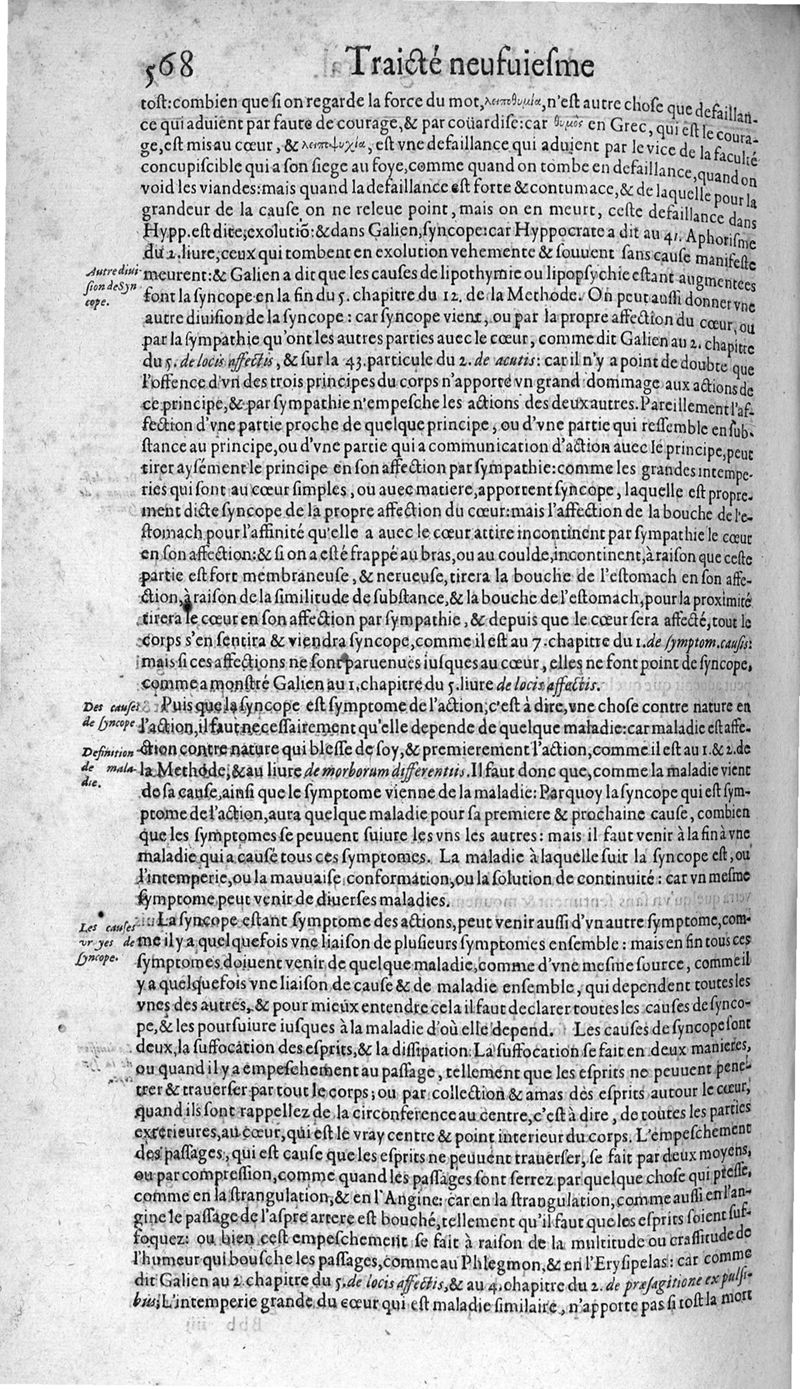 568 Traicté neufuiesme
tost: combien que si on regarde la force du mot, λειποθυμία, n'est autre chose que defaillan-
ce qui aduient par faute de courage, & par coüardise: car θυμὸς en Grec, qui est le coura-
ge, est mis au cœur, & λειποψυχία, est vne defaillance qui aduient par le vice de la faculté
concupiscible qui a son siege au foye, comme quand on tombe en defaillance, quand on
void les viandes: mais quand la defaillance est forte & contumace, & de laquelle pour la
grandeur de la cause on ne releue point, mais on en meurt, ceste defaillance dans
Hypp. est dite, exolutiō: & dans Galien, syncope: car Hyppocrate a dit au 41. Aphorisme
du 2. liure, ceux qui tombent en exolution vehemente & souuent sans cause manifeste
Autre diui
sion de Syn
cope.
meurent: & Galien a dit que les causes de lipothymie ou lipopsychie estant augmentees
font la syncope en la fin du 5. chapitre du 12. de la Methode. On peut aussi donner vne
autre diuision de la syncope : car syncope vient, ou par la propre affection du cœur, ou
par la sympathie qu'ont les autres parties auec le cœur, comme dit Galien au 2. chapitre
du 5. de locis affectis, & sur la 43. particule du 2. de acutis: car il n'y a point de doubte que
l'offence d'vn des trois principes du corps n'apporte vn grand dommage aux actions de
ce principe, & par sympathie n'empesche les actions des deux autres. Pareillement l'af-
fection d'vne partie proche de quelque principe, ou d'vne partie qui ressemble en sub-
stance au principe, ou d'vne partie qui a communication d'action auec le principe, peut
tirer aysément le principe en son affection par sympathie: comme les grandes intempe-
ries qui sont au cœur simples, ou auec matiere, apportent syncope, laquelle est propre-
ment dicte syncope de la propre affection du cœur: mais l'affection de la bouche de l'e-
stomach pour l'affinité qu'elle a auec le cœur attire incontinent par sympathie le cœur
en son affection: & si on a esté frappé au bras, ou au coulde, incontinent, à raison que ceste
partie est fort membraneuse, & nerueuse, tirera la bouche de l'estomach en son affe-
ction, à raison de la similitude de substance, & la bouche de l'estomach, pour la proximité
tirera le cœur en son affection par sympathie, & depuis que le cœur sera affecté, tout le
corps s'en sentira & viendra syncope, comme il est au 7. chapitre du 1. de symptom. causis:
mais si ces affections ne sont paruenues iusques au cœur, elles ne font point de syncope,
comme a monstré Galien au 1. chapitre du 5. liure de locis affectis.
Des causes
de syncope
Puis que la syncope est symptome de l'action, c'est à dire, vne chose contre nature en
l'action, il faut necessairement qu'elle depende de quelque maladie: car maladie est affe-
Definition
de mala-
die.
ction contre nature qui blesse de soy, & premierement l'action, comme il est au 1. & 2. de
la Methode, & au liure de morborum differentiis. Il faut donc que, comme la maladie vient
de sa cause, ainsi que le symptome vienne de la maladie: Parquoy la syncope qui est sym-
ptome de l'action, aura quelque maladie pour sa premiere & prochaine cause, combien
que les symptomes se peuuent suiure les vns les autres: mais il faut venir à la fin à vne
maladie qui a causé tous ces symptomes. La maladie à laquelle suit la syncope est, ou
l'intemperie, ou la mauuaise conformation, ou la solution de continuité : car vn mesme
symptome peut venir de diuerses maladies.
Les causes
vrayes de
syncope.
La syncope estant symptome des actions, peut venir aussi d'vn autre symptome, com-
me il y a quelquefois vne liaison de plusieurs symptomes ensemble : mais en fin tous ces
symptomes doiuent venir de quelque maladie, comme d'vne mesme source, comme il
y a quelquefois vne liaison de cause & de maladie ensemble, qui dependent toutes les
vnes des autres, & pour mieux entendre cela il faut declarer toutes les causes de synco-
pe, & les poursuiure iusques à la maladie d'où elle depend. Les causes de syncope sont
deux, la suffocation des esprits, & la dissipation. La suffocation se fait en deux manieres,
ou quand il y a empeschement au passage, tellement que les esprits ne peuuent pene-
trer & trauerser par tout le corps; ou par collection & amas des esprits autour le cœur,
quand ils sont rappellez de la circonference au centre, c'est à dire, de toutes les parties
exterieures, au cœur, qui est le vray centre & point interieur du corps. L'empeschement
des passages, qui est cause que les esprits ne peuuent trauerser, se fait par deux moyens,
ou par compression, comme quand les passages sont serrez par quelque chose qui presse,
comme en la strangulation, & en l'Angine: car en la strangulation, comme aussi en l'an-
gine le passage de l'aspre artere est bouché, tellement qu'il faut que les esprits soient suf-
foquez: ou bien cest empeschement se fait à raison de la multitude ou crassitude de
l'humeur qui bousche les passages, comme au Phlegmon, & en l'Erysipelas: car comme
dit Galien au 2. chapitre du 5. de locis affectis, & au 4. chapitre du 2. de præsagitione ex pulsi-
bus; L'intemperie grande du cœur qui est maladie similaire, n'apporte pas si tost la mort